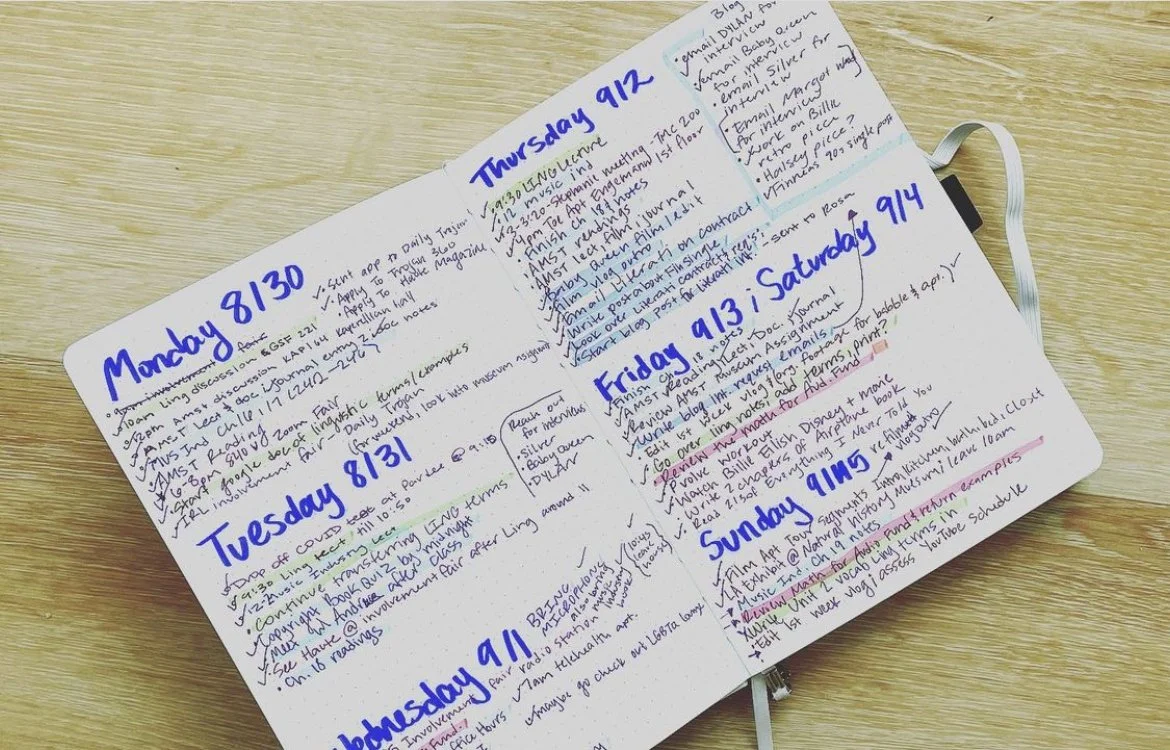 Monday 8/30
involvement fair
10am Ling discussion & GSF 221
12pm Amst discussion KAP164
AMST Lect & doc, journal entry 2 & doc notes
MUS Ind Ch 16, 17 (242-247)
AMST Reading
6-8pm SVO VJ Zoom Fair
Start google doc of linguistic terms/examples
IRL involvement fair - Daily Trojan
(for weekend, look into museum assignment
Sent app to Daily Trojan
Apply To Trojan 360
Apply To Haute Magazine
Tuesday 8/31
Drop off COVID test at Pardee @ 9:15
9:30 Ling lect, till 10:50
12-Music Industry Lect
Continue transferring LING terms
Copyright Book Quiz by midnight
Meet w/ Andrew after class
See Haute @ involvement fair after Ling around 11
Ch. 18 readings
Reach out
for interviews
Silver
Baby Queen
Dylan
Wednesday 9/1
Involvement fair radio station
Fund.
office Hours
BRING
MICROPHONE
also bring
music
industry
book
7am telehealth apt.
maybe go check out LGBTQ lounge
Thursday 9/2
9:30 LING Lecture
12 music ind
3-3:20-Stephanie meeting - TMC 200
4pm Joe Apt Engemann 1st floor
Finish ch 18 & notes
AMST readings
AMST lect film & journal
Baby Queen film & edit
Film vlog outro
Email Literati on contract
Write post about Flinsingle
Look over Literati contract & reqs. - sent to Rosa
Start blog post for literati int.
Blog
email DYLAN for
interview
email Baby Queen
for interview
email Silver for
interview
Email Margot
for interview
Work on Billie
retro piece
Halsey piece?
Finneas 90s single post
Friday 9/3 ; Saturday 9/4
Finish Ch. 18 notes
AMST Reading, Lect, Doc. & journal
Review AMST Museum Assignment
Write blog int. request emails
Edit 1st week vlog (org. footage for bobble & apt.)
Go over ling notes, add terms, print?
Review the math for Aud. Fund.
Pvolve workout
Watch Billie Eilish Disney + movie
Write 2 chapters of Airplane book
Read 215 of Everything I Never Told You
refilm
vlog outro
Sunday 9/5
Film Apt Tour Segments Intro, kitchen, bath, bed, closet
LA Exhibit @ Natural history Museum: leave 10am
Music Ind. Ch 19 notes
Review Math for Audio Fund & return examples
Write Unit 2 vocab Ling terms in
Edit 1st week vlog; assess YouTube Schedule